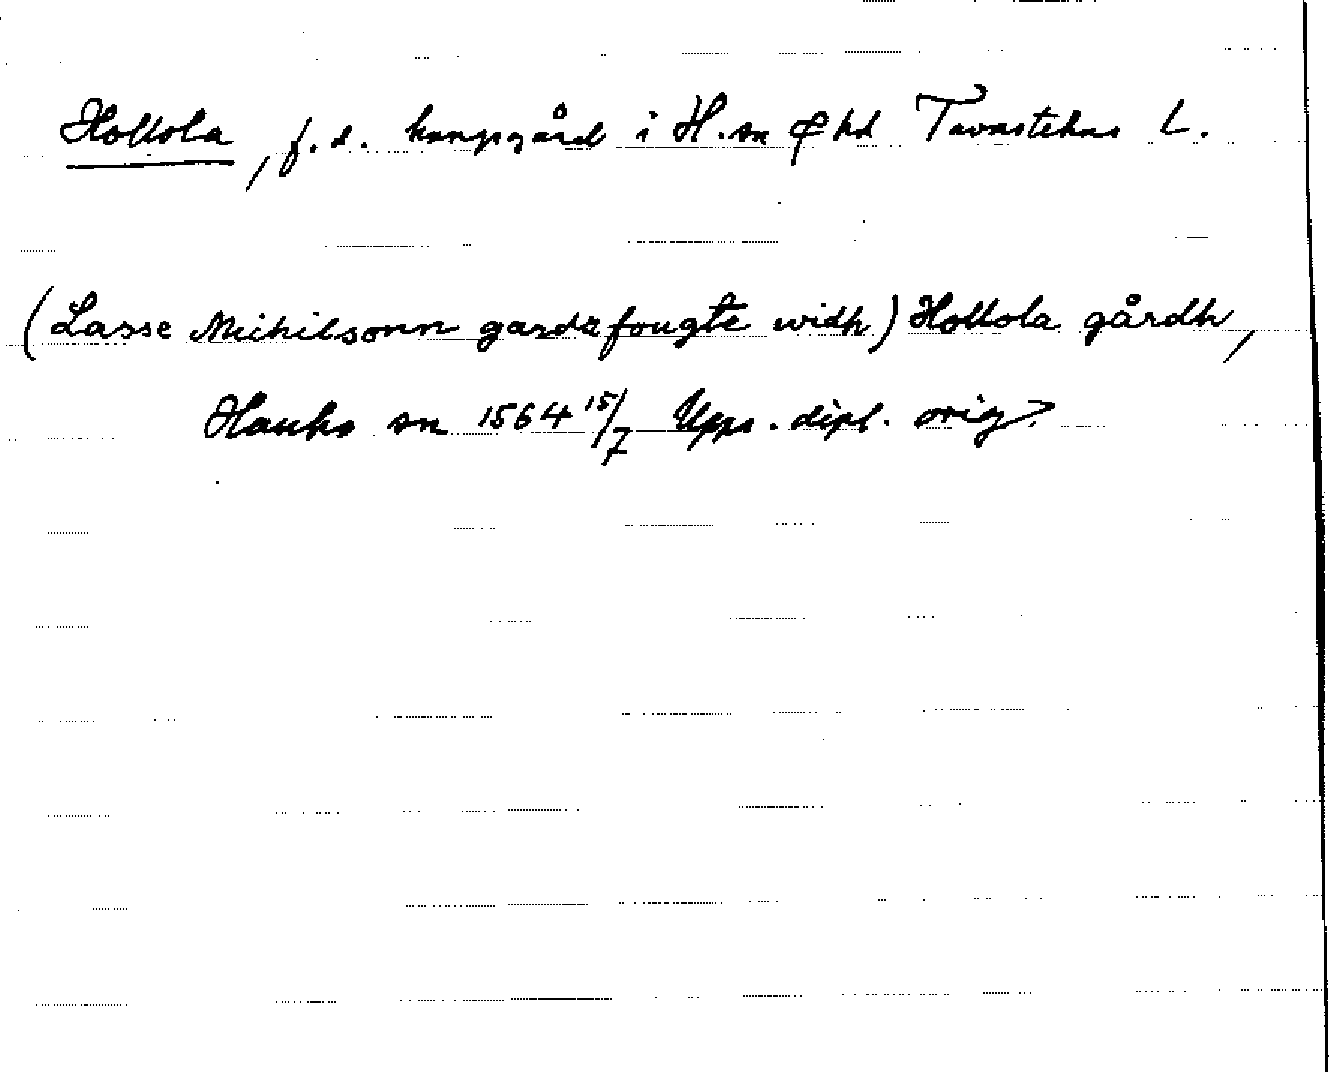 Hollola, f.d. kungsgård i H. sn φ hd Tavastehus L.
(Lasse Michilsonn gardzfougte widh) Hollola gårdh,
Hauho sn 1564 15/7 Upps. dipl. orig>